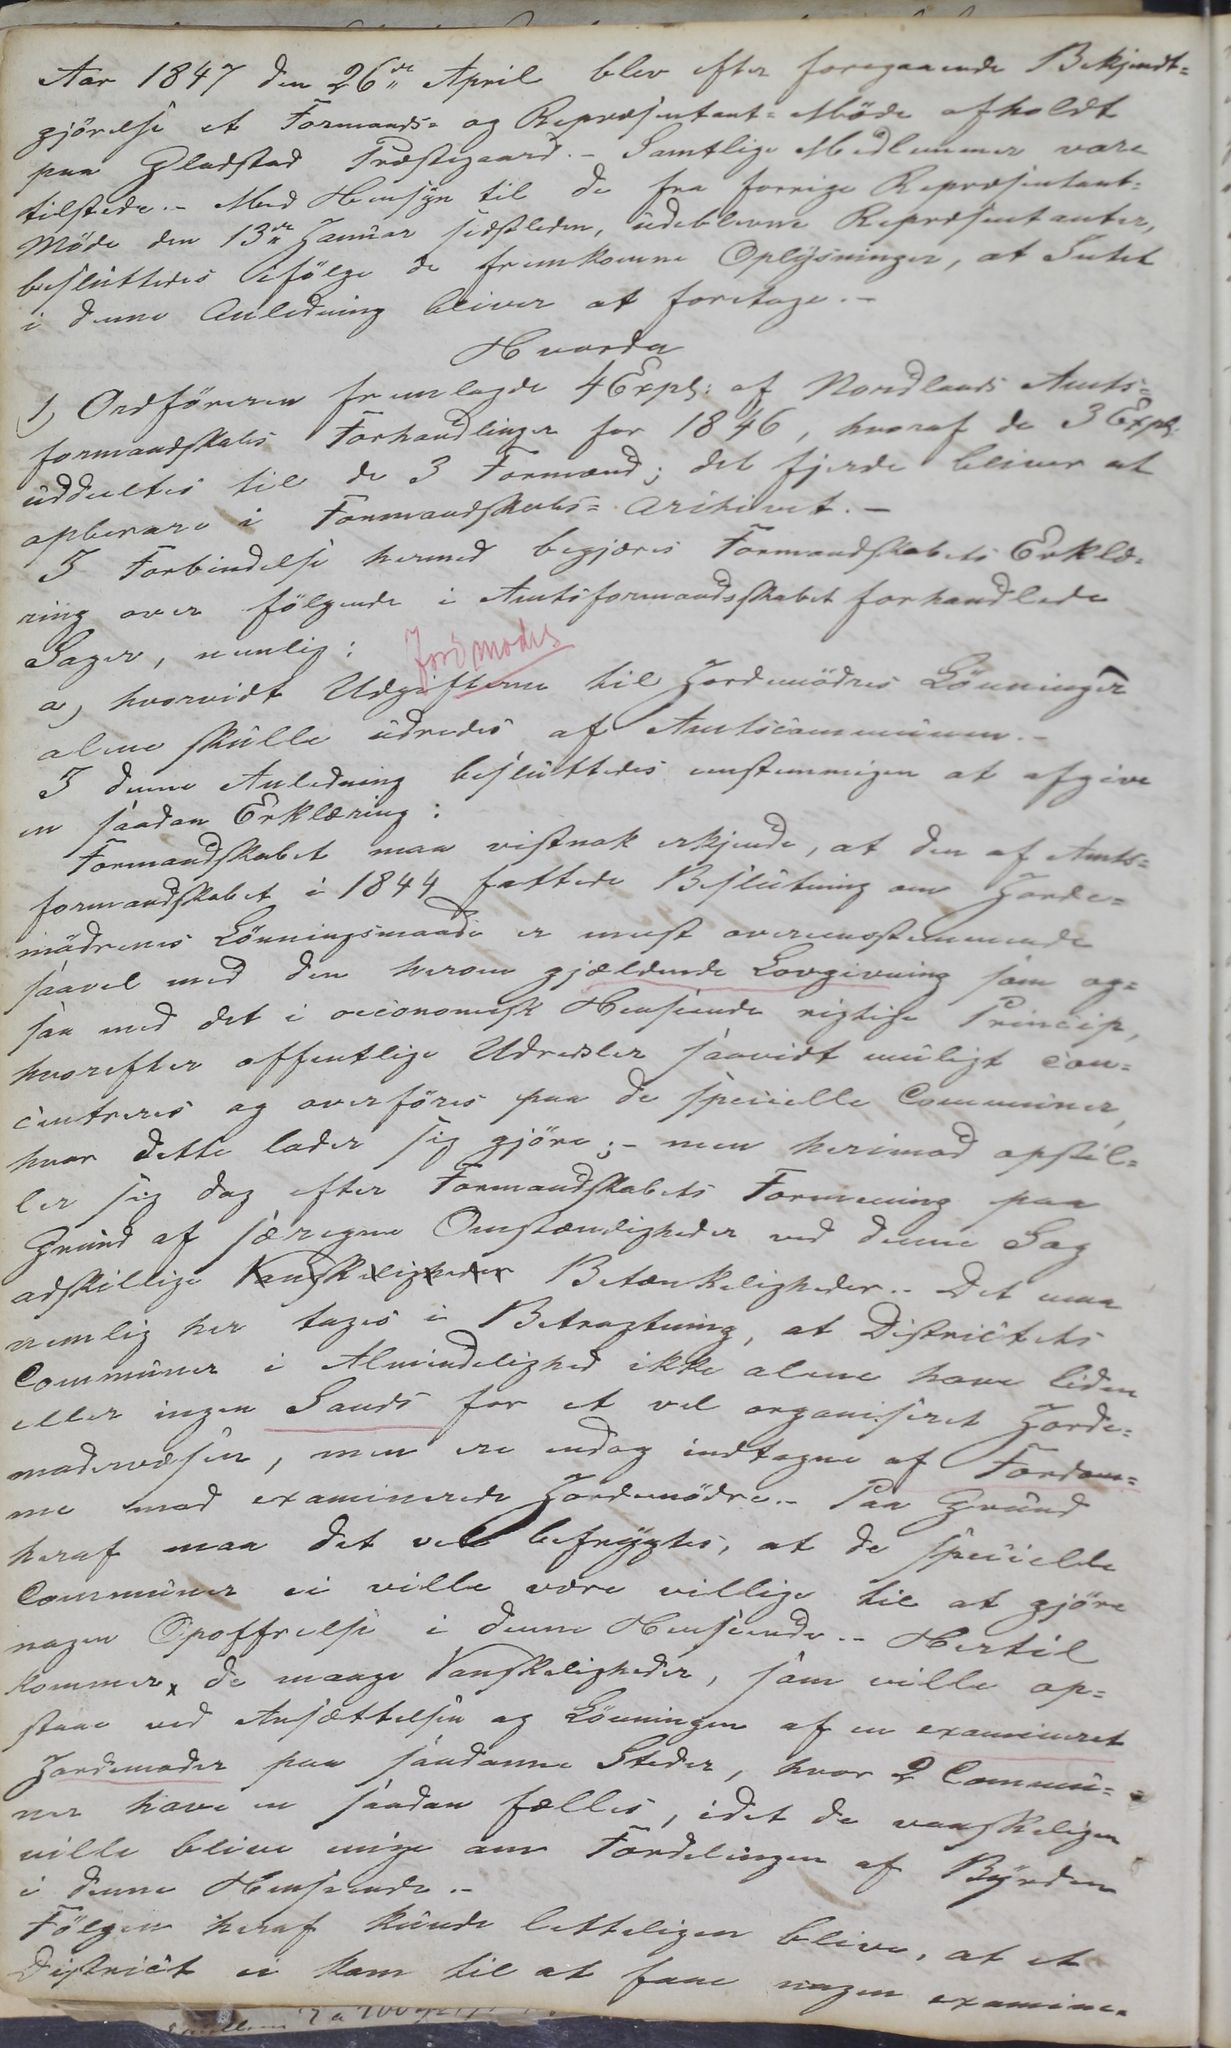 Aar 1847 den 26de April blev efter foregaaende Bekjendt-
gjörelse et Formands- og Repræsentant-Möde afholdt
paa Gladstad Præstegaard. - Samtlige Medlemmer vare
tilstede. - Med Hensyn til de fra forrige Repræsentant-
Möde den 13de Januar sidstleden, udeblevne Repræsentanter,
besluttedes ifölge de fremkomne Oplysninger, at Intet
i denne Anledning bliver at foretage. -
Hvorda
1, Ordföreren fremlagde 4 Expl: af Nordlands Amts-
formandskabs Forhandlinger for 1846, hvoraf de 3 Expl.
uddeeltes til de 3 Formænd; det fjerde bliver at
opbevare i Formandskabs-Archivet. -
I Forbindelse hermed begjæres Formandskabets Erklæ-
ring over fölgende i Amtsformandsskabet forhandlede
Sager, nemlig:
Jordmodes
a, hvorvidt Udgifterne til Jordemödres Lönninger
alene skulle udredes af Amtscommunen. -
I denne Anledning besluttedes eenstemmigen at afgive
en saadan Erklæring:
Formandskabet maa vistnok erkjende, at den af Amts-
formandskabet i 1844 fattede Beslutning om Jorde-
mödrenes Lönningsmaade er meest overeensstemmende
saavel med den herom gjældende Lovgivning som og-
saa med det i oeconomisk Henseende rigtige Princip,
hvorefter offentlige Udredsler saavidt muligt con-
centreres og overföres paa de specielle Communer,
hvor dette lader sig gjöre; - men herimod opstil-
ler sig dog efter Formandskabets Formening paa
Grund af særegne Omstændigheder ved denne Sag
adskillige Vanskeligheder Betænkeligheder. - Det maa
nemlig her tages i Betragtning, at Districtets
Communer i Almindelighed ikke alene have liden
eller ingen Sands for et vel organiseret Jorde-
modervæsen, men ere endog indtagne af Fordom-
me mod examinerede Jordemödre. - Paa Grund
heraf maa det vel befrygtes, at de specielle
Communer ei ville være villige til at gjöre
nogen Opoffrelse i denne Henseende. - Hertil
kommer de mange Vanskeligheder, som ville op-
staae ved Ansættelsen og Lönningen af en examineret
Jordemoder paa saadanne Steder, hvor 2 Commu-
ner have en saadan fælles, idet de vanskeligen
ville blive enige om Fordelingen af Byrden
i denne Henseende. -
Fölgen heraf kunde letteligen blive, at et
District ei kom til at faae nogen examine-